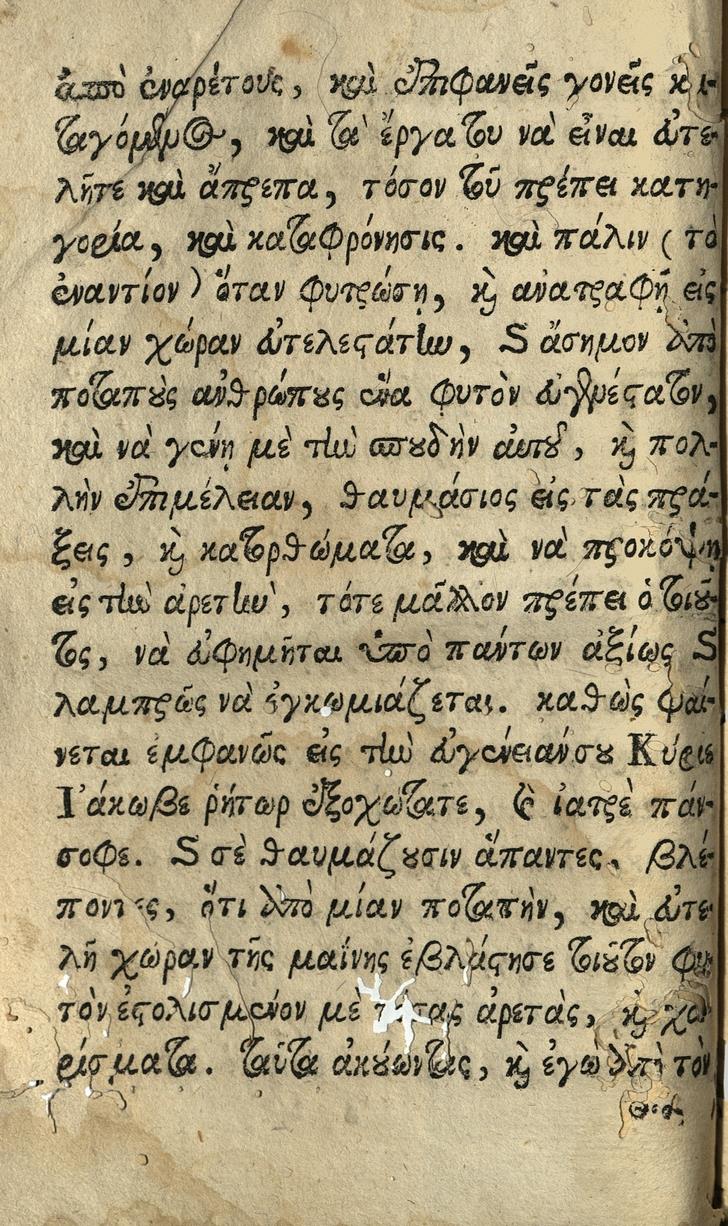 ἀπὸ ἐναρέτους, καὶ ἐπιφανεῖς γονεῖς κι-
ταγόμενος, καὶ τὰ ἔργα του νὰ εἶναι εὐτε-
λῆτε καὶ ἄπρεπα, τόσον τοῦ πρέπει κατη-
γορία, καὶ καταφρόνησις. καὶ πάλιν (τὸ
ἐναντίον) ὅταν φυτρώσῃ, κὶ ἀνατραφῇ εἰς
μίαν χώραν εὐτελεστάτην, ϗ ἄσημον ἀπὸ
ποταποὺς ἀνθρώπους ἕνα φυτὸν εὐγενέστατον,
καὶ νὰ γένῃ μὲ τὴν σπουδὴν αὐτοῦ, κὶ πολ-
λὴν ἐπιμέλειαν, θαυμάσιος εἰς τὰς πρά-
ξεις, κὶ κατορθώματα, καὶ νὰ προκόψῃ
εἰς τὴν ἀρετὴν, τότε μᾶλλον πρέπει ὁ τοιοῦ-
τος, νὰ εὐφημῆται ὑπὸ πάντων ἀξίως ϗ
λαμπρῶς νὰ ἐγκωμιάζεται. καθὼς φαί-
νεται ἐμφανῶς εἰς τὴν εὐγένειάνσου Κύριε
Ἰάκωβε ῥήτωρ ἐξοχώτατε, ϗ ἰατρὲ πάν-
σοφε. ϗ σὲ θαυμάζουσιν ἅπαντες, βλέ-
ποντες, ὅτι ἀπὸ μίαν ποταπὴν, καὶ εὐτε-
λῆ χώραν τῆς μαΐνης ἐβλάστησε τοιοῦτον φυ-
τὸν ἐστολισμένον μὲ τόσας ἀρετὰς, κὶ χα-
ρίσματα. ταῦτα ἀκούωντας, κὶ ἐγὼ ἀπὸ τὸν